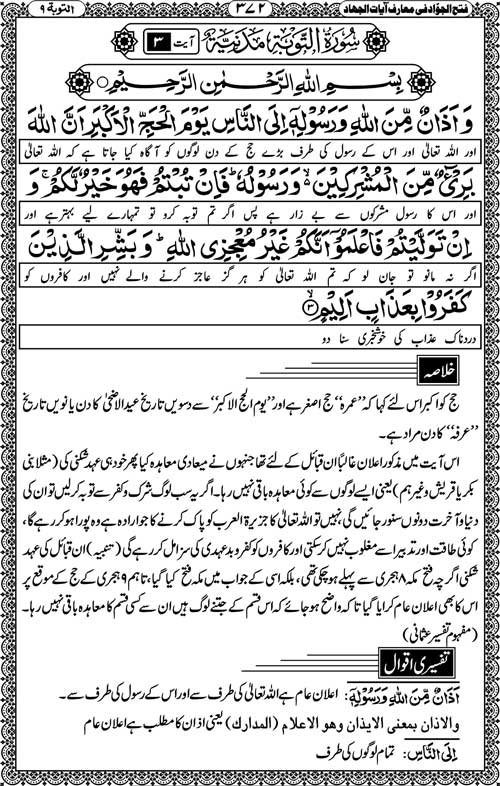 التوبة ۹ ۳۷۲ فتح الجوّاد فی معارف آیات الجهاد
سُوْرَۃُ التَّوْبَۃِ مَدَنِیَّۃٌ آیت ۳
بِسْمِ اللهِ الرَّحْمٰنِ الرَّحِیْمِ
وَ اَذَانٌ مِّنَ اللهِ وَ رَسُوْلِهٖٓ اِلَی النَّاسِ یَوْمَ الْحَجِّ الْاَكْبَرِ اَنَّ اللهَ
اور اللہ تعالیٰ اور اس کے رسول کی طرف بڑے حج کے دن لوگوں کو آگاہ کیا جاتا ہے کہ اللہ تعالیٰ
بَرِیْٓءٌ مِّنَ الْمُشْرِكِیْنَ ۙ وَ رَسُوْلُهٗ ؕ فَاِنْ تُبْتُمْ فَهُوَ خَیْرٌ لَّكُمْ ۚ وَ
اور اس کا رسول مشرکوں سے بے زار ہے پس اگر تم توبہ کرو تو تمہارے لیے بہتر ہے اور
اِنْ تَوَلَّیْتُمْ فَاعْلَمُوْۤا اَنَّكُمْ غَیْرُ مُعْجِزِی اللهِ ؕ وَ بَشِّرِ الَّذِیْنَ
اگر نہ مانو تو جان لو کہ تم اللہ تعالیٰ کو ہر گز عاجز کرنے والے نہیں اور کافروں کو
كَفَرُوْا بِعَذَابٍ اَلِیْمٍ ۳
دردناک عذاب کی خوشخبری سنا دو
خلاصہ
حج کو اکبر اس لئے کہا کہ ’’عمرہ‘‘ حج اصغر ہے اور ’’یوم الحج الاکبر‘‘ سے دسویں تاریخ عیدالاضحیٰ کا دن یا نویں تاریخ
’’عرفہ‘‘ کا دن مراد ہے۔
اس آیت میں مذکور اعلان غالباً ان قبائل کے لئے تھا جنہوں نے میعادی معاہدہ کیا پھر خود ہی عہد شکنی کی (مثلاً بنی
بکر یا قریش وغیرہم) یعنی ایسے لوگوں سے کوئی معاہدہ باقی نہیں رہا۔ اگر یہ سب لوگ شرک و کفر سے توبہ کر لیں تو ان کی
دنیا و آخرت دونوں سنور جائیں گی نہیں تو اللہ تعالیٰ کا جزیرۃ العرب کو پاک کرنے کا جو ارادہ ہے وہ پورا ہو کر رہے گا،
کوئی طاقت اور تدبیر اسے مغلوب نہیں کر سکتی اور کافروں کو کفر و بدعہدی کی سزا مل کر رہے گی (تنبیہ) ان قبائل کی عہد
شکنی اگرچہ فتح مکہ ۸ ہجری سے پہلے ہو چکی تھی، بلکہ اسی کے جواب میں مکہ فتح کیا گیا، تاہم ۹ ہجری کے حج کے موقع پر
اس کا بھی اعلان عام کرایا گیا تاکہ واضح ہو جائے کہ اس قسم کے جتنے لوگ ہیں ان سے کسی قسم کا معاہدہ باقی نہیں رہا۔
(مفہوم تفسیر عثمانی)
تفسیری اقوال
اَذَانٌ مِّنَ اللهِ وَ رَسُوْلِهٖٓ: اعلان عام ہے اللہ تعالیٰ کی طرف سے اور اس کے رسول کی طرف سے۔
والاذان بمعنی الایذان وهو الاعلام (المدارک) یعنی اذان کا مطلب ہے اعلان عام
اِلَی النَّاسِ: تمام لوگوں کی طرف